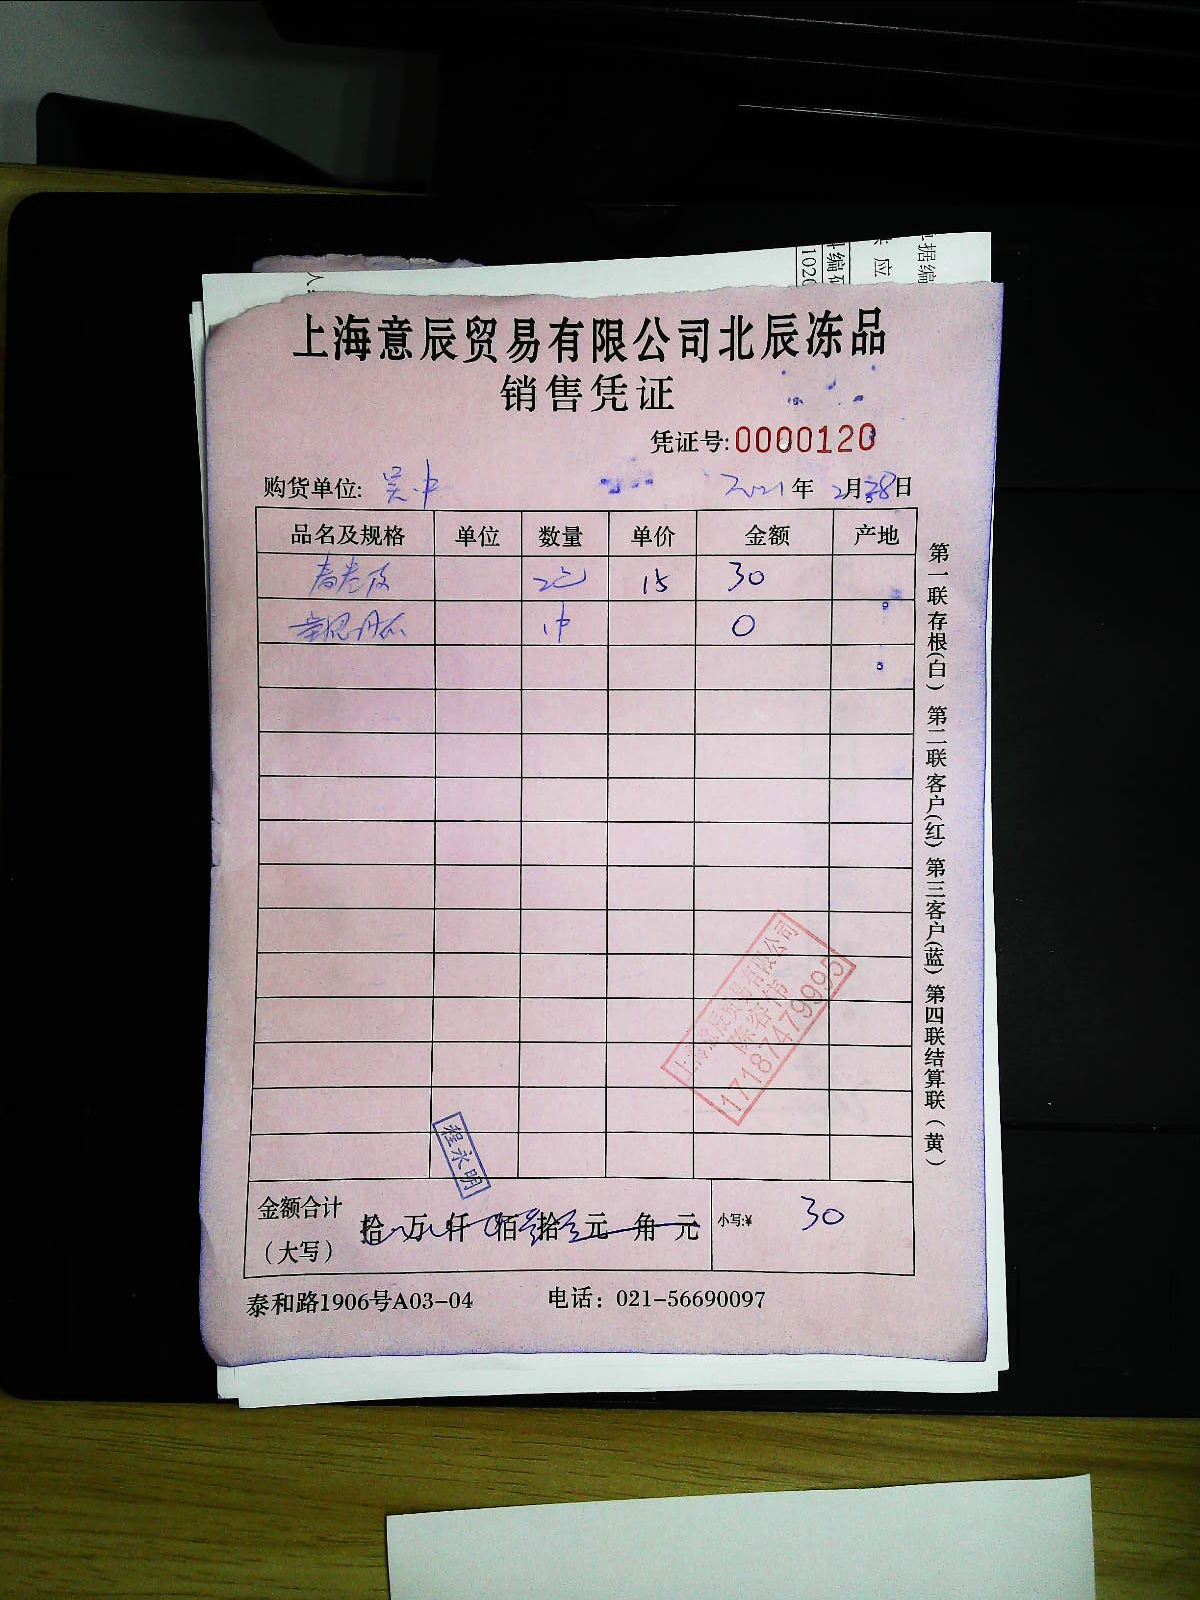 据编
应
编码
1020
人
上海意辰贸易有限公司北辰冻品
销售凭证
凭证号:0000120
购货单位: 吴中 2021年 2月28日
品名及规格 单位 数量 单价 金额 产地
春卷皮 2包 15 30
1中 0
第一联存根(白) 第二联客户(红) 第三客户(蓝) 第四联结算联(黄)
上海意辰贸易有限公司
陈容伟
17187479995
程永明
金额合计
(大写) 拾 万 仟 佰 叁拾 元 角 元 小写:¥ 30
泰和路1906号A03-04 电话: 021-56690097